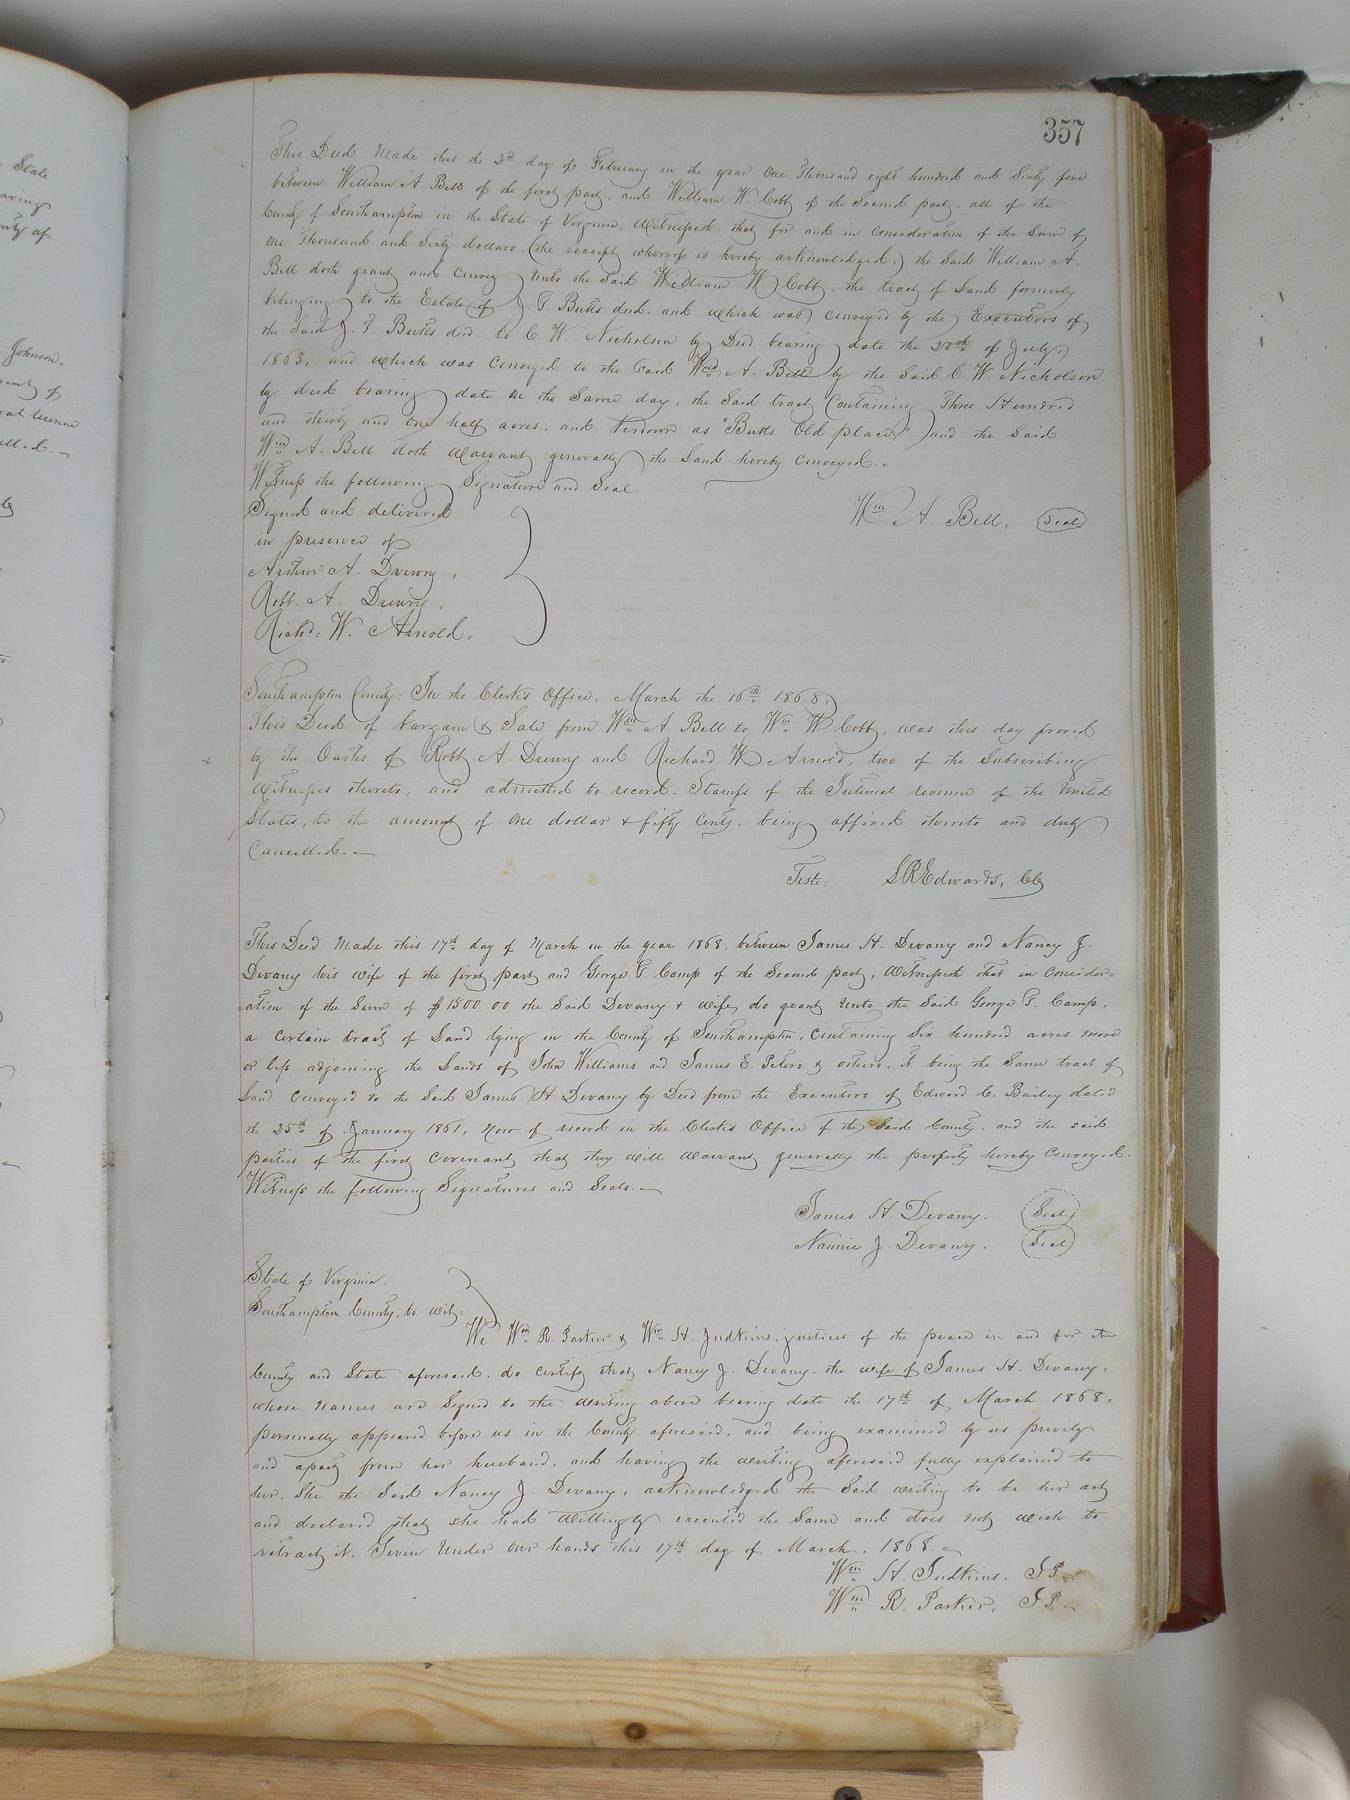 State
Johnson,
357
This Deed Made this the 2d day of February in the year One Thousand eight hundred and Sixty five
between William A. Bell of the first part, and William W. Cobb of the Second part, all of the
County of Southampton in the State of Virginia, Witnesseth, that for and in consideration of the Sum of
One Thousand and Sixty dollars, (the receipt whereof is hereby acknowledged,) the Said William A.
Bell doth grant and Convey unto the Said William W. Cobb, the tract of Land formerly
belonging to the Estate of J. T. Butts decd. and which was conveyed by the Executors of
the Said J. T. Butts decd. to C. W. Nicholson by Deed bearing date the 20th of July,
1863, and which was Conveyed to the Said Wm A. Bell by the Said C. W. Nicholson
by deed bearing date on the Same day, the Said tract Containing Three Hundred
and thirty and One half acres, and known as "Butts Old place," and the Said
Wm A. Bell doth Warrant generally the Land hereby Conveyed.
Witness the following Signature and Seal.
Signed and delivered
in presence of
Wm A. Bell, Seal
Arthur A. Drewry,
Robt. A. Drewry,
Richd. W. Arnold,
Southampton County: In the Clerk's Office, March the 16th 1868,
This Deed of bargain & Sale from Wm A. Bell to Wm W Cobb, was this day proved
by the Oaths of Robt A. Drewry and Richard W Arnold, two of the Subscribing
Witnesses thereto, and admitted to record. Stamps of the Internal revenue of the United
States, to the amount of One dollar & fifty Cents, being affixed thereto and duly
Cancelled.
Teste: LREdwards, CC
This Deed Made this 17th day of March in the year 1868, between James H. Devany and Nancy J.
Devany his wife of the first part and George T. Camp of the Second part, Witnesseth That in consider=
=ation of the Sum of $1500.00 the Said Devany & wife, do grant unto the Said George T. Camp,
a certain tract of Land lying in the County of Southampton, Containing Six hundred acres more
or less adjoining the Lands of John Williams and James E. Peters & others, it being the Same tract of
Land Conveyed to the Said James H Devany by Deed from the Executors of Edward C. Bailey dated
the 25th of January 1861, Now of record in the Clerk's Office of the Said County, and the said
parties of the first Covenant that they will Warrant generally the property hereby Conveyed.
Witness the following Signatures and Seals.
James H. Devany. Seal
Nannie J. Devany. Seal
State of Virginia.
Southampton County, to wit:
We Wm R. Parker & Wm H. Judkins, justices of the peace in and for the
County and State aforesaid, do certify that Nancy J. Devany, the wife of James H. Devany,
whose names are Signed to the Writing above bearing date the 17th of March 1868,
personally appeared before us in the County aforesaid, and being examined by us privily
and apart from her husband, and having the writing aforesaid fully explained to
her, She the Said Nancy J. Devany, acknowledged the Said writing to be her act
and declared that She had Willingly executed the Same and does not wish to
retract it. Given under our hands this 17th day of March, 1868.
Wm H. Judkins. J.P.
Wm R. Parker, J.P.